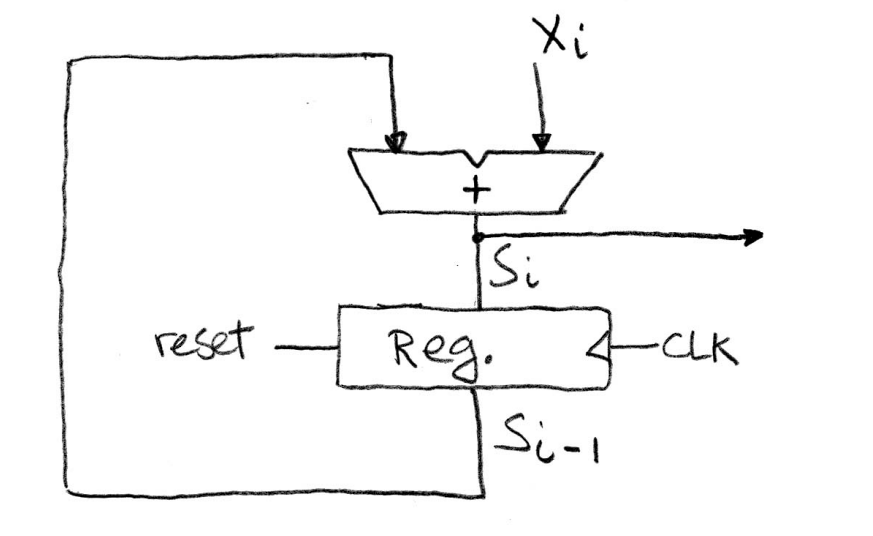 Xi
+
Si
reset
Reg.
CLK
Si-1